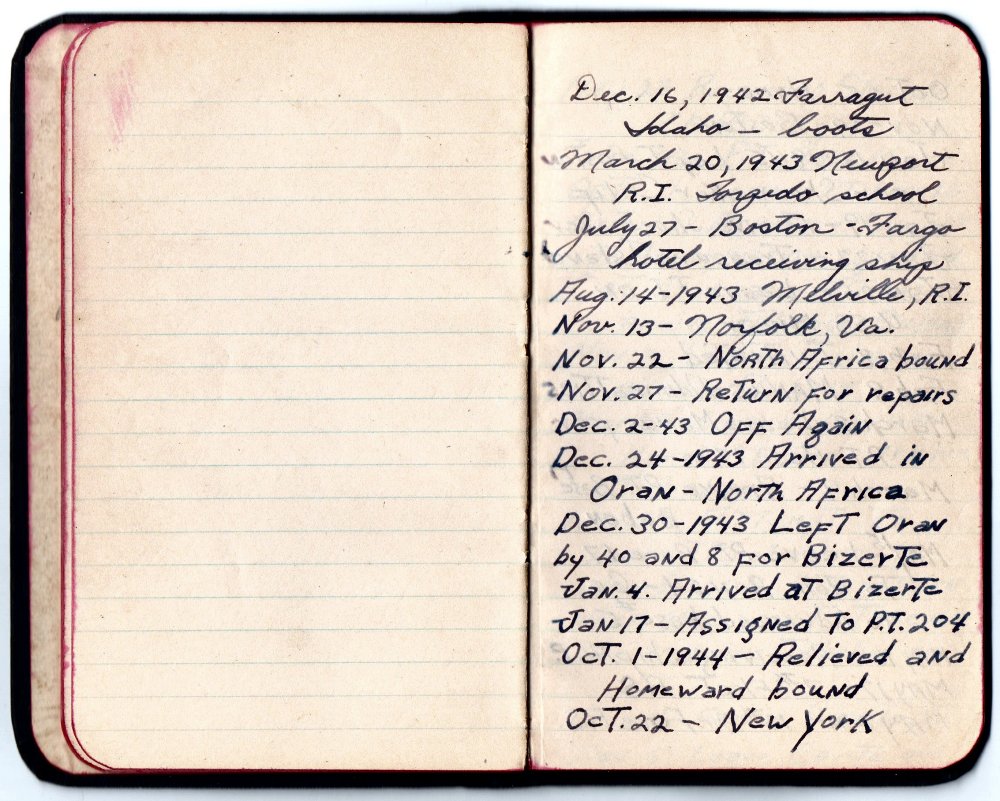 Dec. 16, 1942 Farragut
Idaho – boots
March 20, 1943 Newport
R.I. Torpedo school
July 27 – Boston - Fargo
hotel receiving ship
Aug. 14-1943 Melville, R.I.
Nov. 13 – Norfolk, Va.
Nov. 22 – North Africa bound
Nov. 27 – Return for repairs
Dec. 2-43 Off Again
Dec. 24-1943 Arrived in
Oran – North Africa
Dec. 30-1943 Left Oran
by 40 and 8 for Bizerte
Jan. 4. Arrived at Bizerte
Jan 17 – Assigned To P.T. 204
Oct. 1-1944 – Relieved and
Homeward bound
Oct. 22 – New York